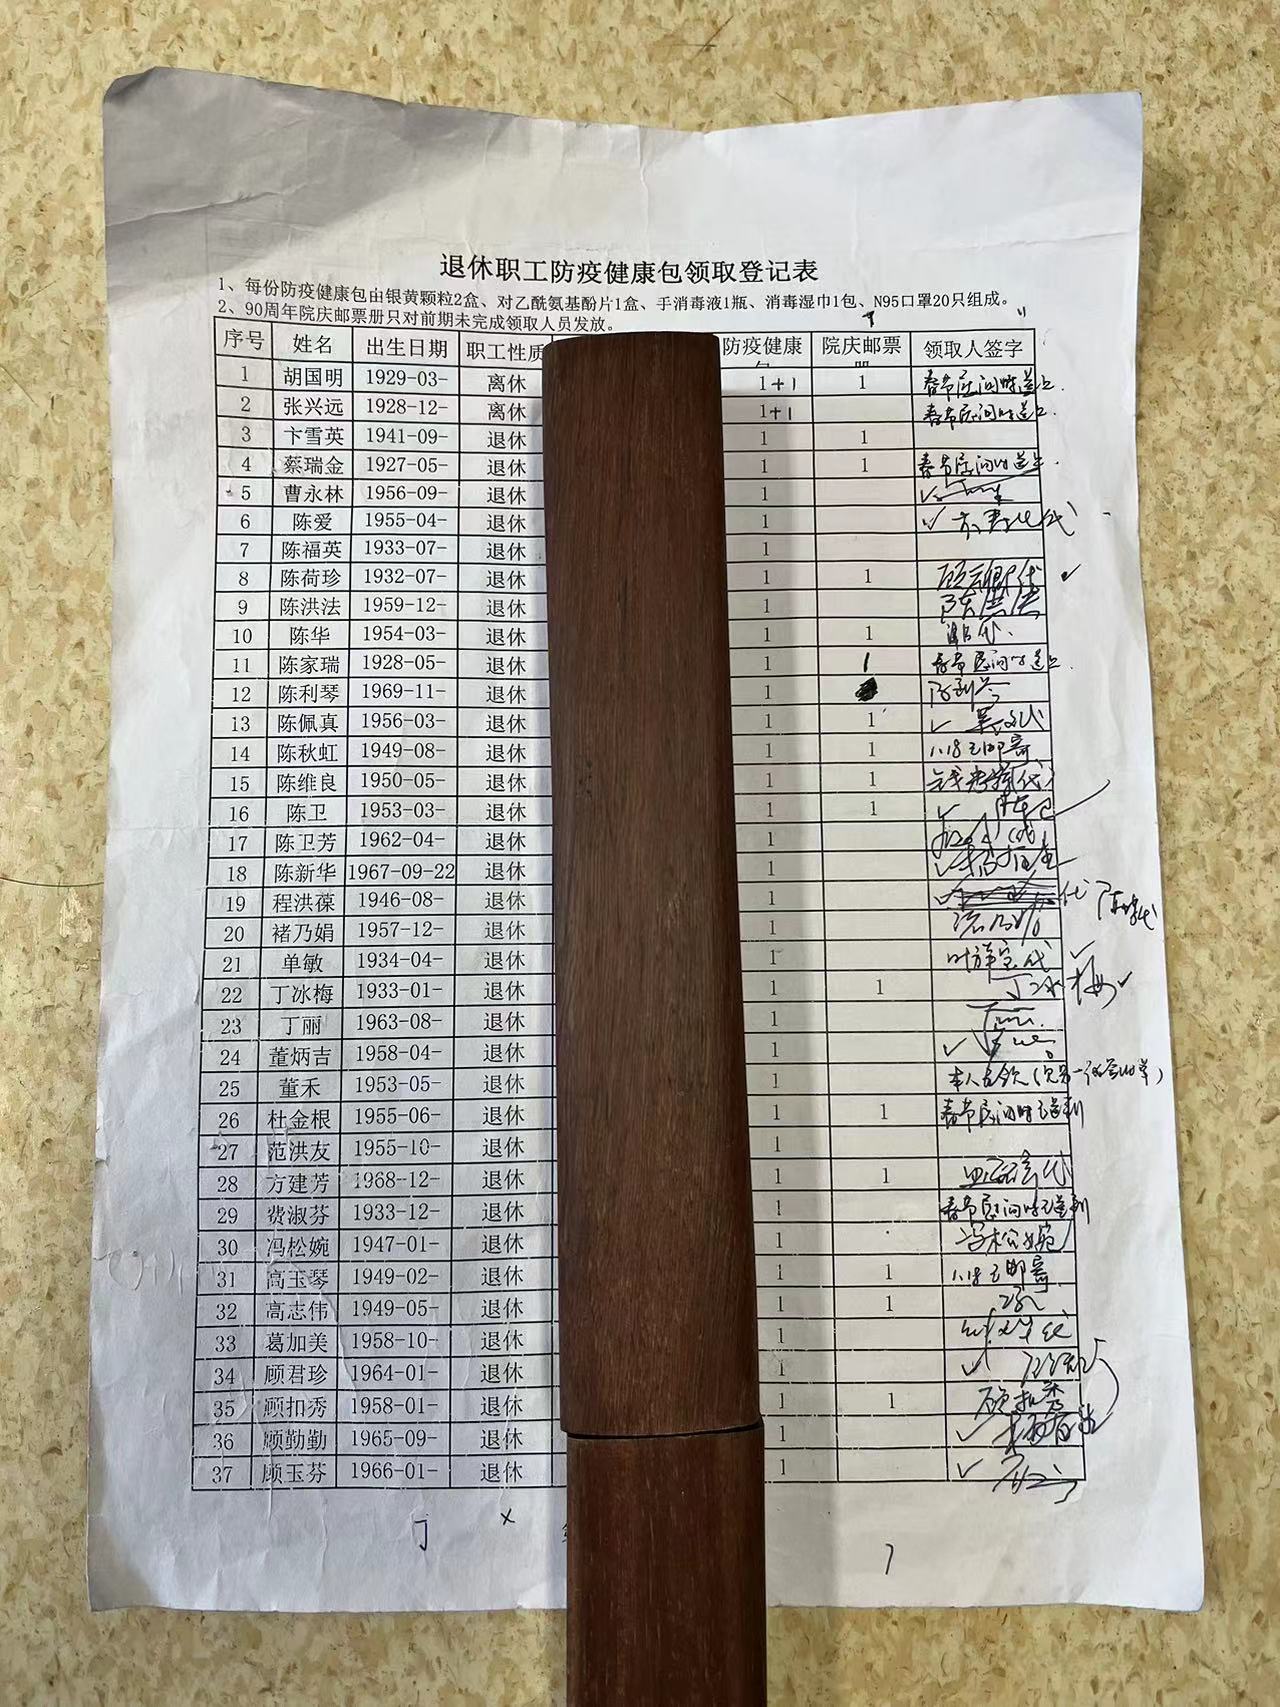 退休职工防疫健康包领取登记表
1、每份防疫健康包由银黄颗粒2盒、对乙酰氨基酚片1盒、手消毒液1瓶、消毒湿巾1包、N95口罩20只组成。
2、90周年院庆邮票册只对前期未完成领取人员发放。
序号 姓名 出生日期 职工性质 防疫健康 院庆邮票 领取人签字
1 胡国明 1929-03- 离休 1+1 1 春节慰问时送上.
2 张兴远 1928-12- 离休 1+1 春节慰问时送上
3 卞雪英 1941-09- 退休 1 1
4 蔡瑞金 1927-05- 退休 1 1 春节慰问时送上.
5 曹永林 1956-09- 退休 1 ✓
6 陈爱 1955-04- 退休 1 ✓ 代
7 陈福英 1933-07- 退休 1
8 陈荷珍 1932-07- 退休 1 1 代 ✓
9 陈洪法 1959-12- 退休 1 陈洪法
10 陈华 1954-03- 退休 1 1 代.
11 陈家瑞 1928-05- 退休 1 1 春节慰问时送上.
12 陈利琴 1969-11- 退休 1 陈利琴
13 陈佩真 1956-03- 退休 1 1 ✓ 代
14 陈秋虹 1949-08- 退休 1 1 1.18已邮寄
15 陈维良 1950-05- 退休 1 1 代
16 陈卫 1953-03- 退休 1 1 ✓ 陈卫
17 陈卫芳 1962-04- 退休 1 代
18 陈新华 1967-09-22 退休 1 ✓
19 程洪葆 1946-08- 退休 1 代
20 褚乃娟 1957-12- 退休 1
21 单敏 1934-04- 退休 1 代 ✓
22 丁冰梅 1933-01- 退休 1 1 丁冰梅 ✓
23 丁丽 1963-08- 退休 1
24 董炳吉 1958-04- 退休 1 ✓
25 董禾 1953-05- 退休 1 本人已领
26 杜金根 1955-06- 退休 1 1 春节慰问时已送到
27 范洪友 1955-10- 退休 1
28 方建芳 1968-12- 退休 1 1 代
29 费淑芬 1933-12- 退休 1 春节慰问时已送到
30 冯松婉 1947-01- 退休 1 冯松婉
31 高玉琴 1949-02- 退休 1 1 1.18已邮寄
32 高志伟 1949-05- 退休 1 1
33 葛加美 1958-10- 退休 1 代
34 顾君珍 1964-01- 退休 1 ✓
35 顾扣秀 1958-01- 退休 1 1 顾扣秀
36 顾勤勤 1965-09- 退休 1 ✓
37 顾玉芬 1966-01- 退休 1 ✓